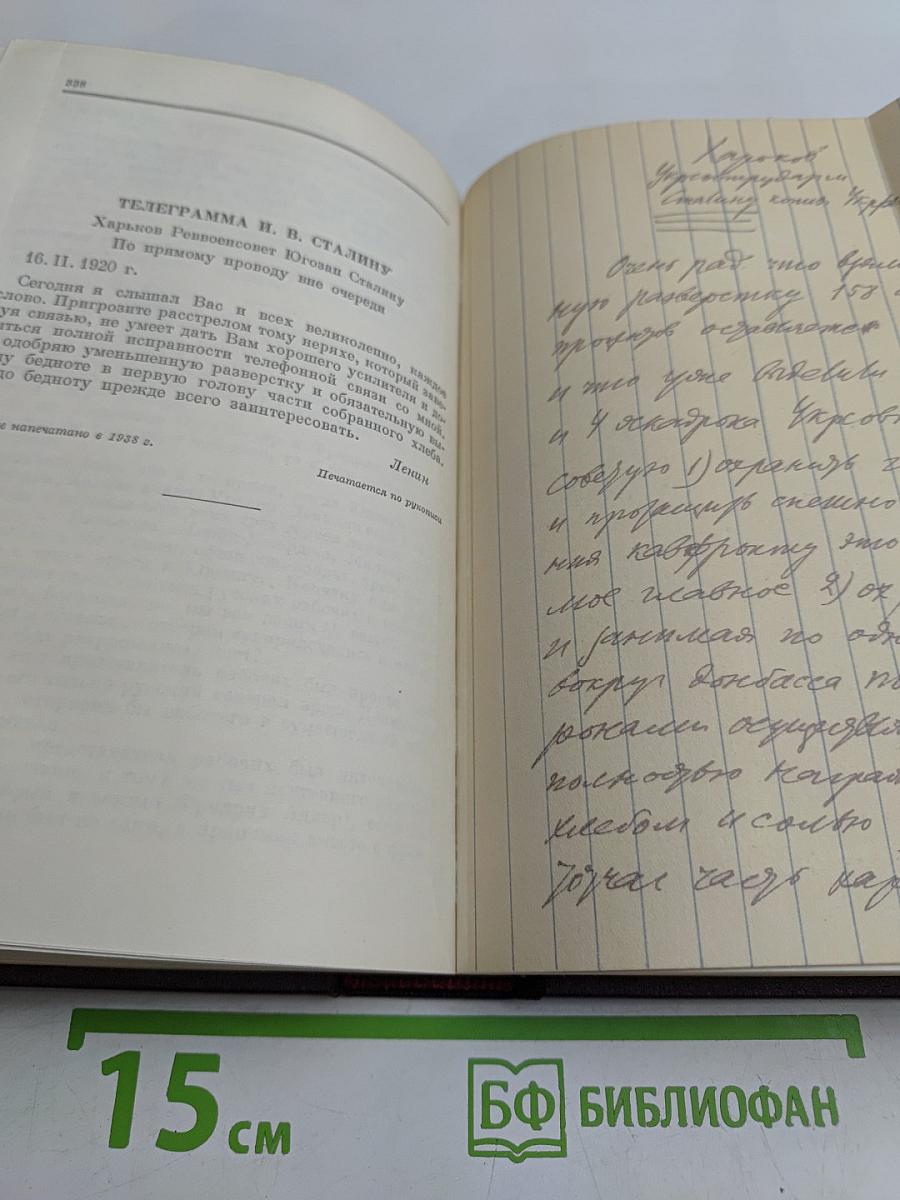 338
ТЕЛЕГРАММА И. В. СТАЛИНУ
Харьков Реввоенсовет Югозап Сталину
По прямому проводу вне очереди
16. II. 1920 г.
Сегодня я слышал Вас и всех великолепно, каждое
слово. Пригрозите расстрелом тому неряхе, который заве-
уя связью, не умеет дать Вам хорошего усилителя и до-
иться полной исправности телефонной связи со мной.
одобряю уменьшенную разверстку и обязательную вы-
чу бедноте в первую голову части собранного хлеба.
до бедноту прежде всего заинтересовать.
Ленин
е напечатано в 1938 г.
Печатается по рукописи
Харьков
Укрсовтрударм
Сталину копия Укрр
Очень рад что
ную разверстку 158
процентов оставляете
и что уже выделили
и 4 эскадрона Укрсов
советую 1) охранять
и протащить спешно
ния кавфронту это
мое главное 2) ох
и занимая по одн
вокруг Донбасса по
ронами осуществл
полностью награ
хлебом и солью
тотчас часть хар
15 см
БФ БИБЛИОФАН